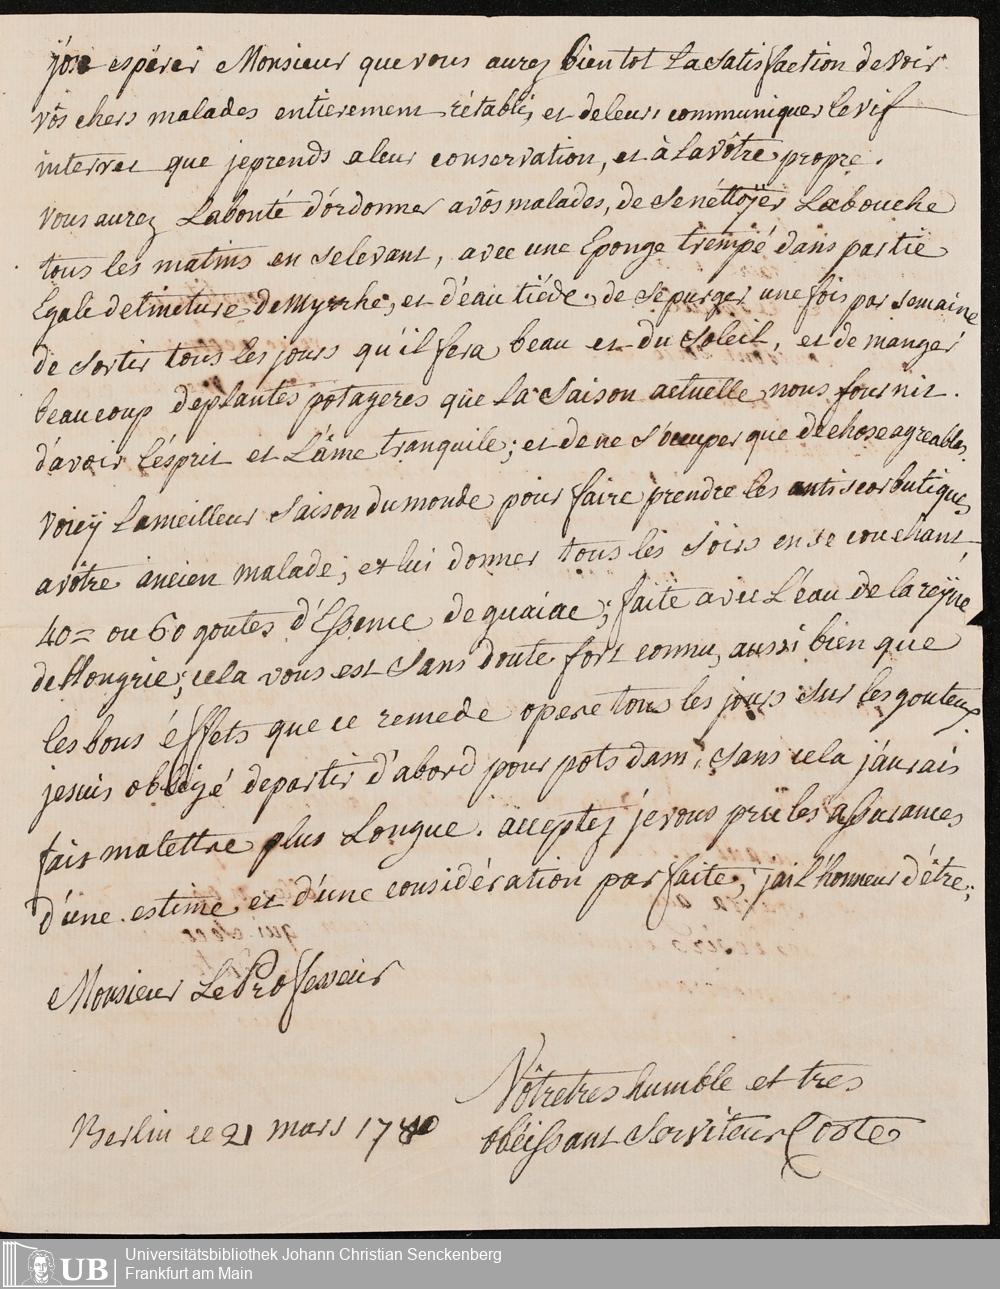 j'ose espérer Monsieur que vous aurez bientot La satisfaction de voir
vôs chers malades entierement rétablis, et de leurs communiquer le vif
interret que je prends a leur conservation, et à La vôtre propre.
Vous aurez Labonté d'órdonner a vôs malades, de se néttoÿer La bouche
tous les matins en se levant, avec une Eponge trempé dans partie
Egale de tincture de Myrrhe, et d'eau tiéde, de se purger une fois par semaine
de sortir tous les jours qu'il fera beau et du Soleil, et de manger
beaucoup de plantes potageres que La Saison actuelle nous fournit.
d'avoir l'ésprit et L'âme tranquile; et de ne s'occuper que de chose agreables,
Voicÿ La meilleur Saison du monde pour faire prendre les antiscorbutiques
a vôtre ancien malade; et lui donner tous les Soirs en se couchant
40= ou 60 goutes d'Essence de guaiac; faite avec L'eau de la reÿne
de Hongrie; cela vous est Sans doute fort connu, aussi bien que
les bons éffets que ce remede opere tous les jours sur les gouteux
je suis obligé de partir d'abord pour potsdam, Sans cela j'aurais
fait ma lettre plus Longue. acceptez je vous prie les assurances
d'une estime et d'une considération parfaite; j'ai l'honneur d'être;
Monsieur Le Professeur
Vôtre tres humble et tres
Berlin ce 21 mars 1740
obéissant Serviteur Coste
Universitätsbibliothek Johann Christian Senckenberg
UB
Frankfurt am Main